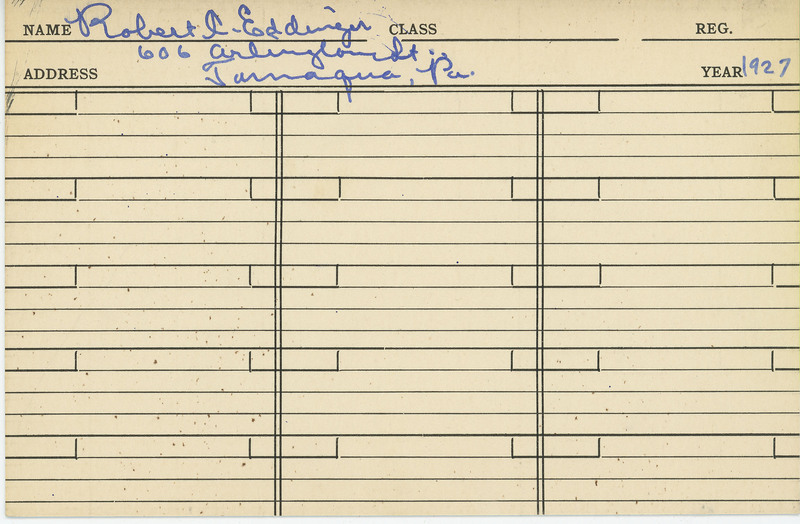 NAME Robert C. Eddinger CLASS REG.
606 Arlington St.,
ADDRESS Tamaqua, Pa. YEAR 1927